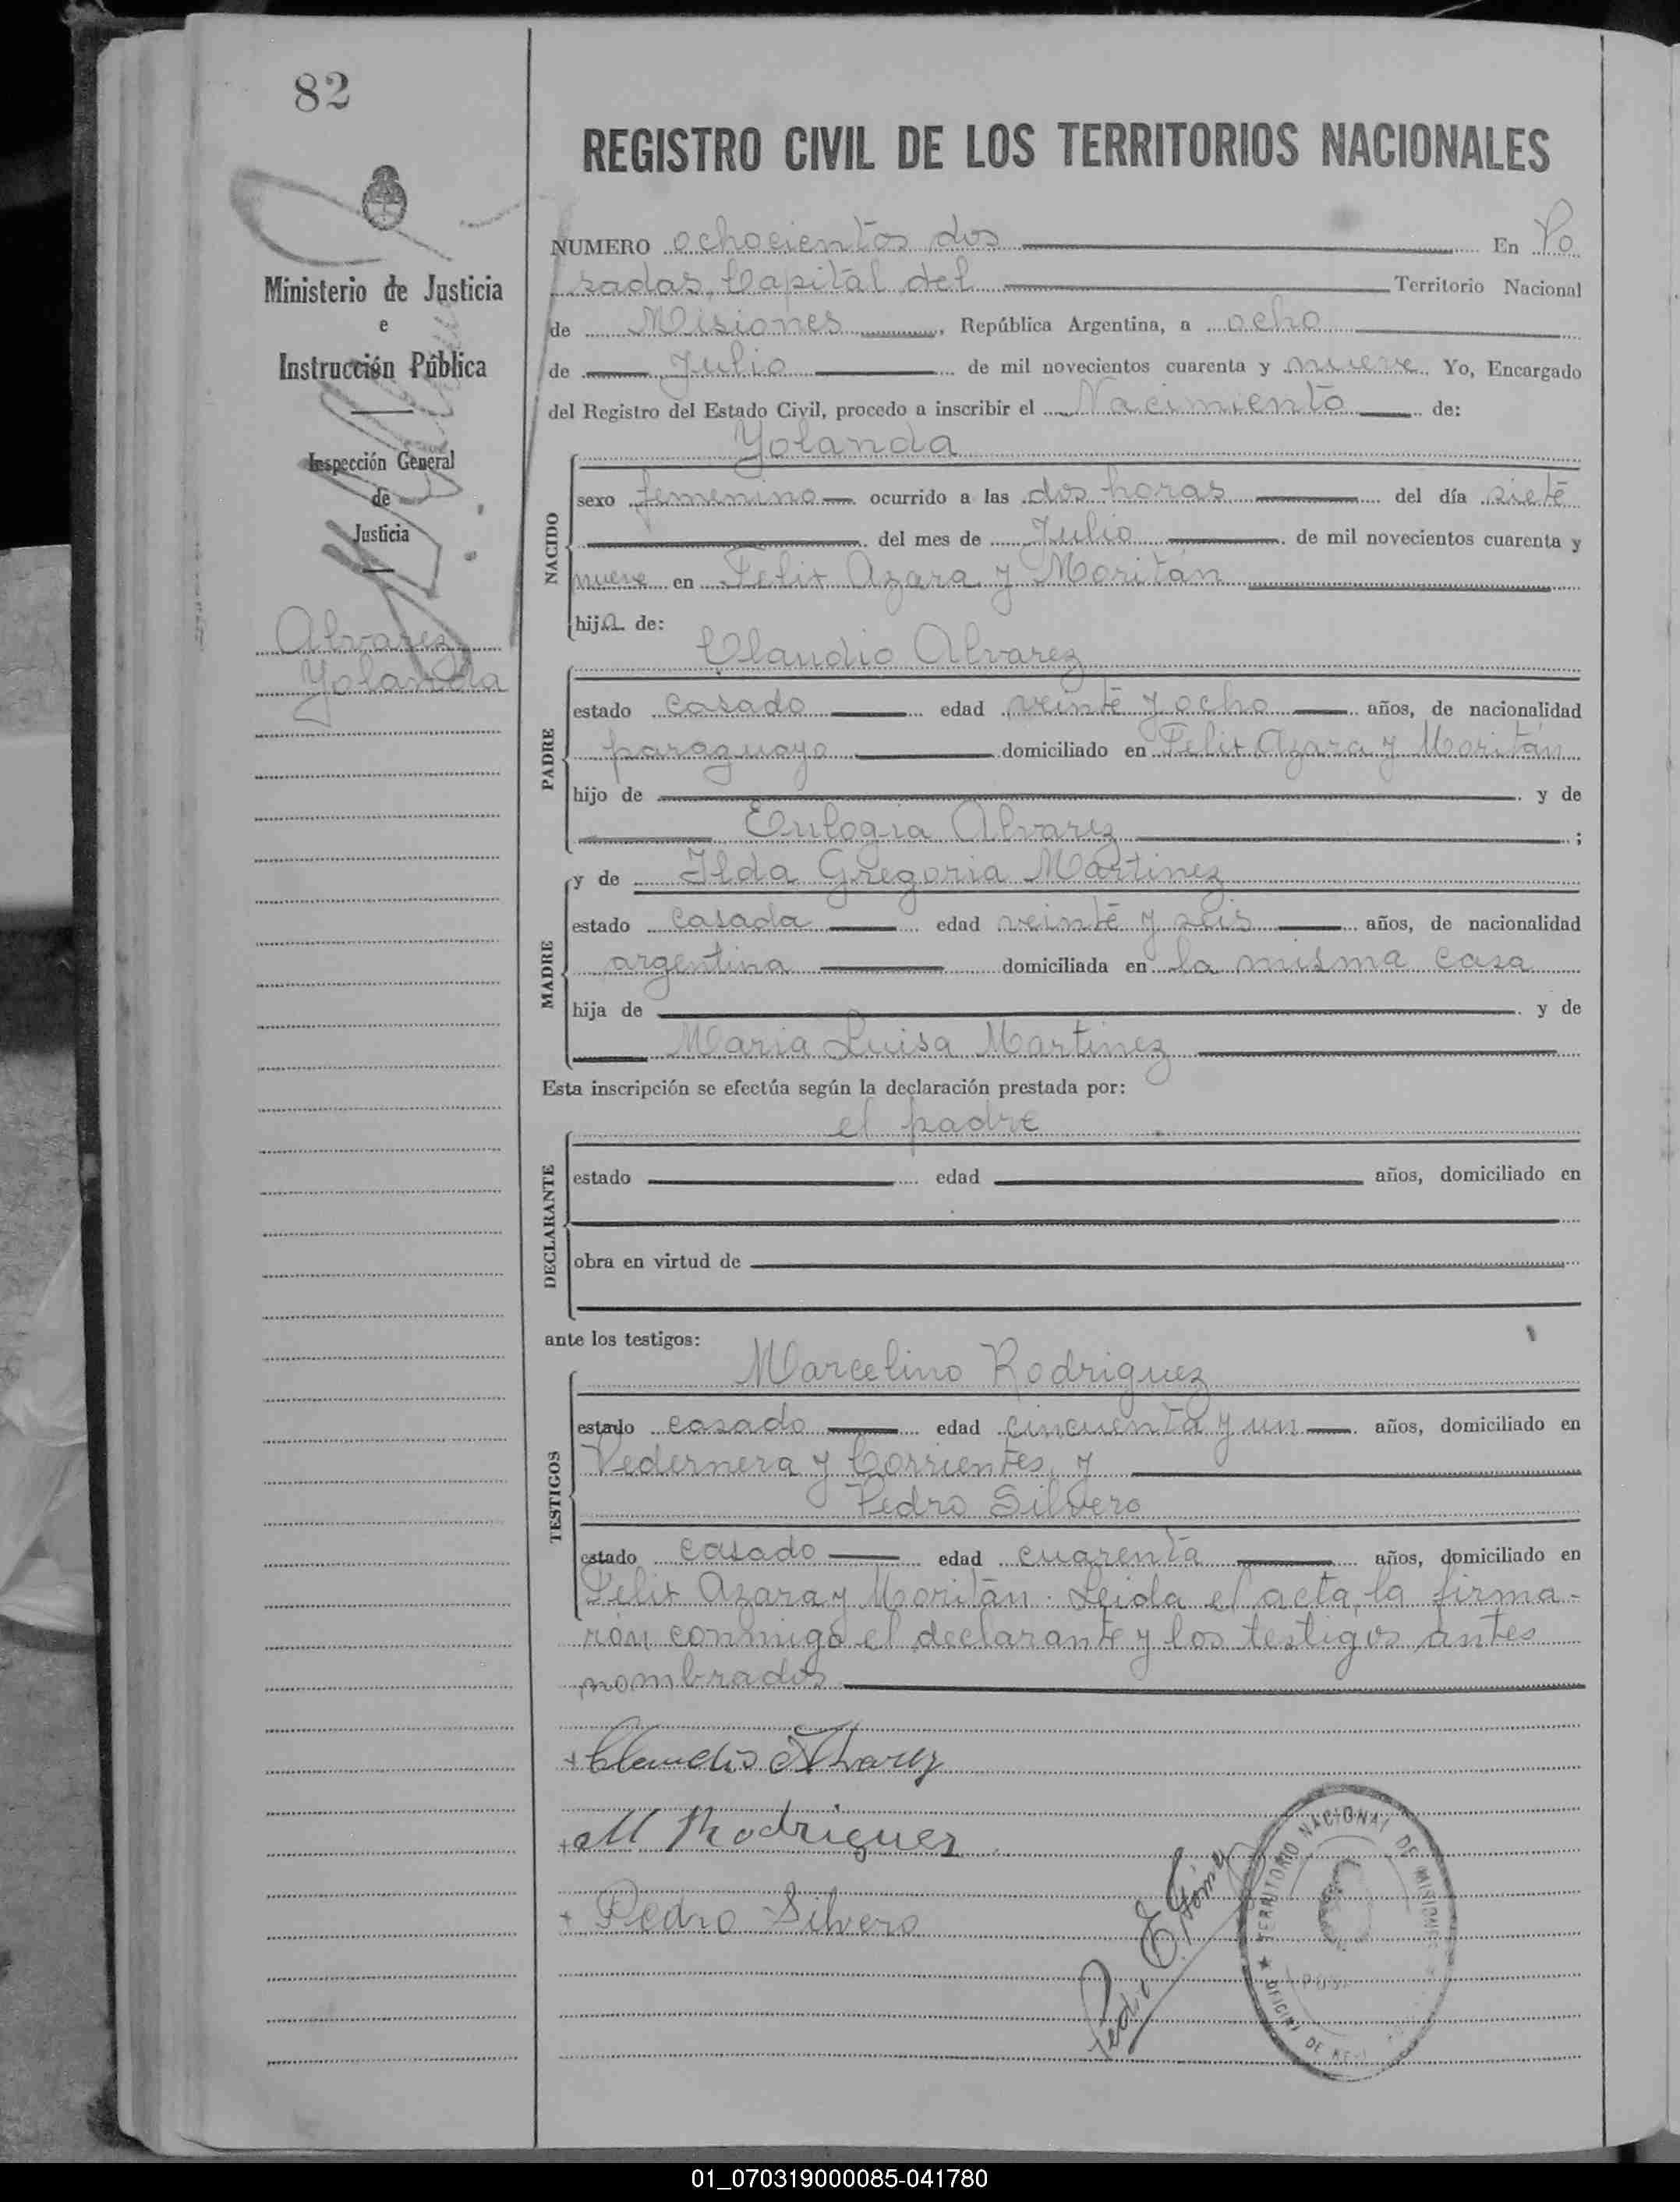 82
Ministerio de Justicia
e
Instrucción Pública
Inspección General
de
Justicia
Alvarez
Yolanda
REGISTRO CIVIL DE LOS TERRITORIOS NACIONALES
NUMERO ochocientos dos En Po
sadas, Capital del Territorio Nacional
de Misiones, República Argentina, a ocho
de Julio de mil novecientos cuarenta y nueve Yo, Encargado
del Registro del Estado Civil, procedo a inscribir el Nacimiento de:
Yolanda
NACIDO
sexo femenino ocurrido a las dos horas del día siete
del mes de Julio de mil novecientos cuarenta y
nueve en Felix Azara y Moritán
hija de:
Claudio Alvarez
PADRE
estado casado edad veinte y ocho años, de nacionalidad
paraguayo domiciliado en Felix Azara y Moritán
hijo de y de
Eulogia Alvarez ;
MADRE
y de Ilda Gregoria Martinez
estado casada edad veinte y seis años, de nacionalidad
argentina domiciliada en la misma casa
hija de y de
Maria Luisa Martinez
Esta inscripción se efectúa según la declaración prestada por:
el padre
DECLARANTE
estado edad años, domiciliado en
obra en virtud de
ante los testigos:
Marcelino Rodriguez
TESTIGOS
estado casado edad cincuenta y un años, domiciliado en
Pedernera y Corrientes, y
Pedro Silvero
estado casado edad cuarenta años, domiciliado en
Felix Azara y Moritán. Leida el acta, la firma-
rón conmigo el declarante y los testigos antes
nombrados
+ Claudio Alvarez
+ M Rodriguez
+ Pedro Silvero
Pedro E. Gómez
TERRITORIO NACIONAL DE MISIONES
OFICINA DE
01_070319000085-041780